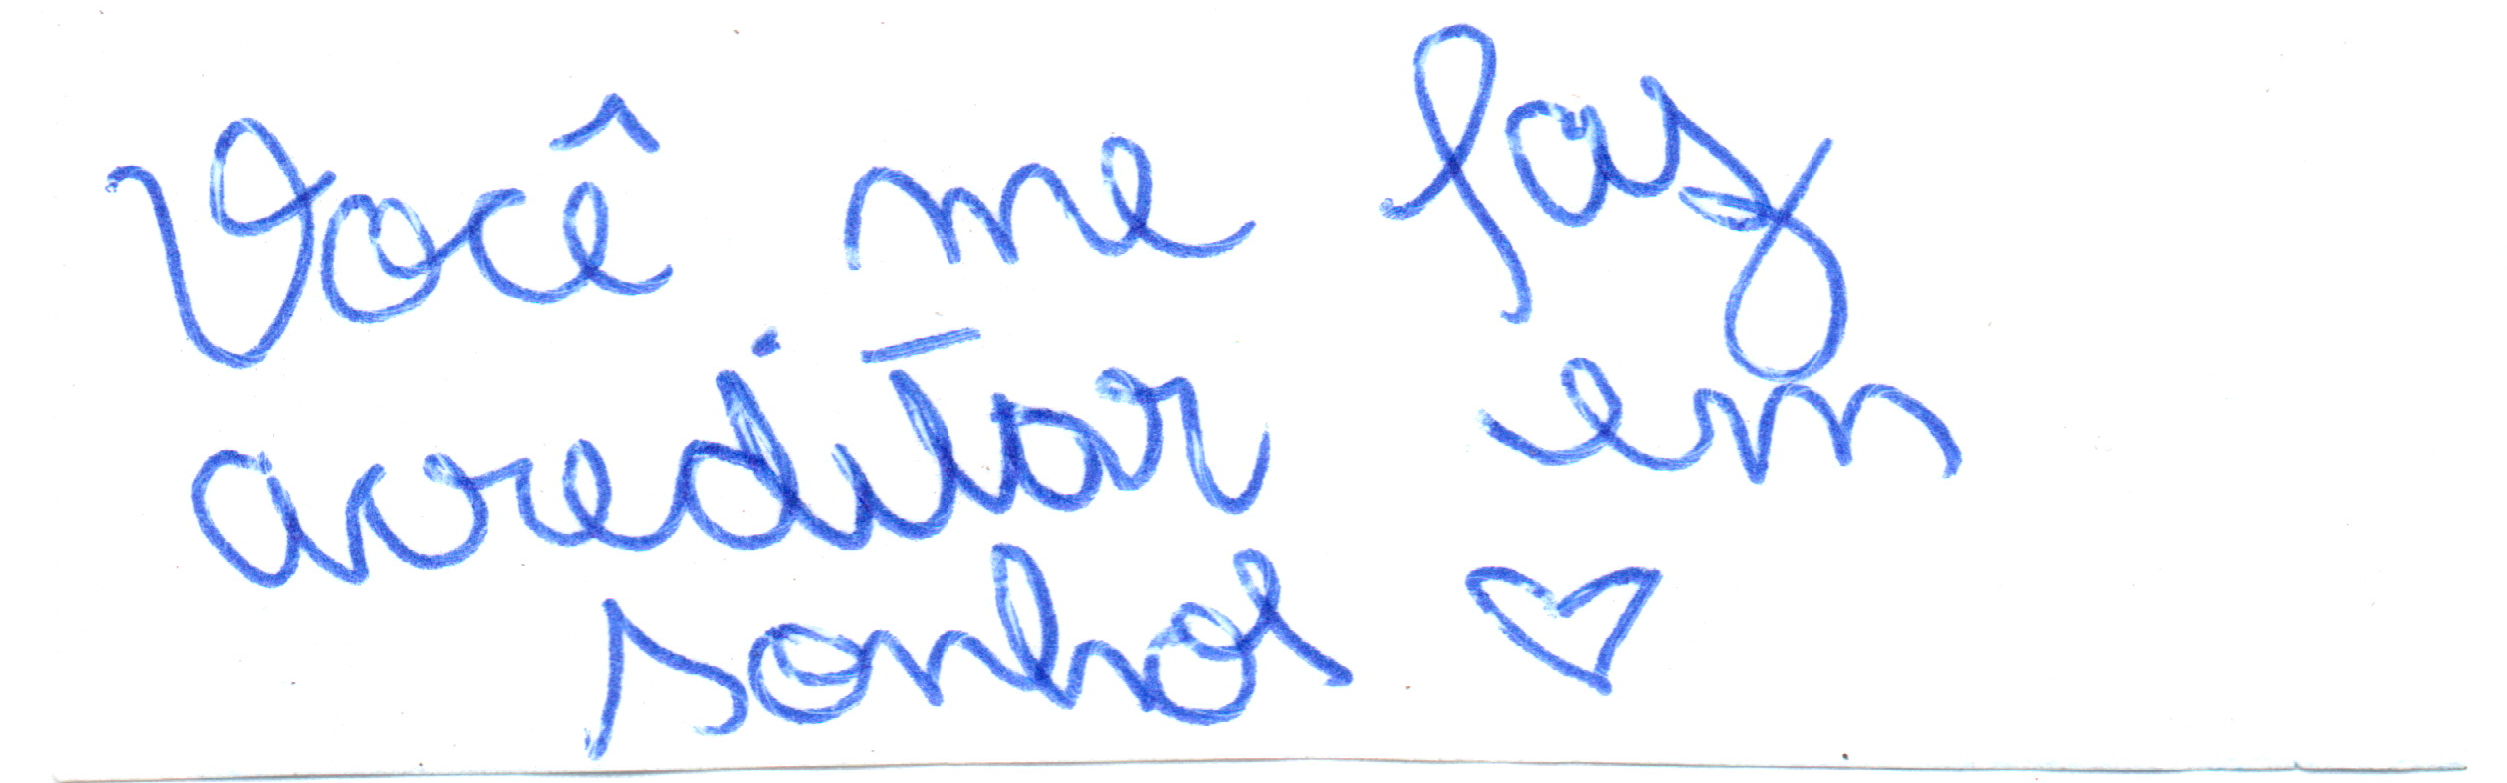 Você me faz
acreditar em
sonhos ♡